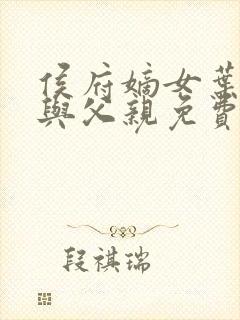 侯府嫡女葉
與父親免費
段祺瑞